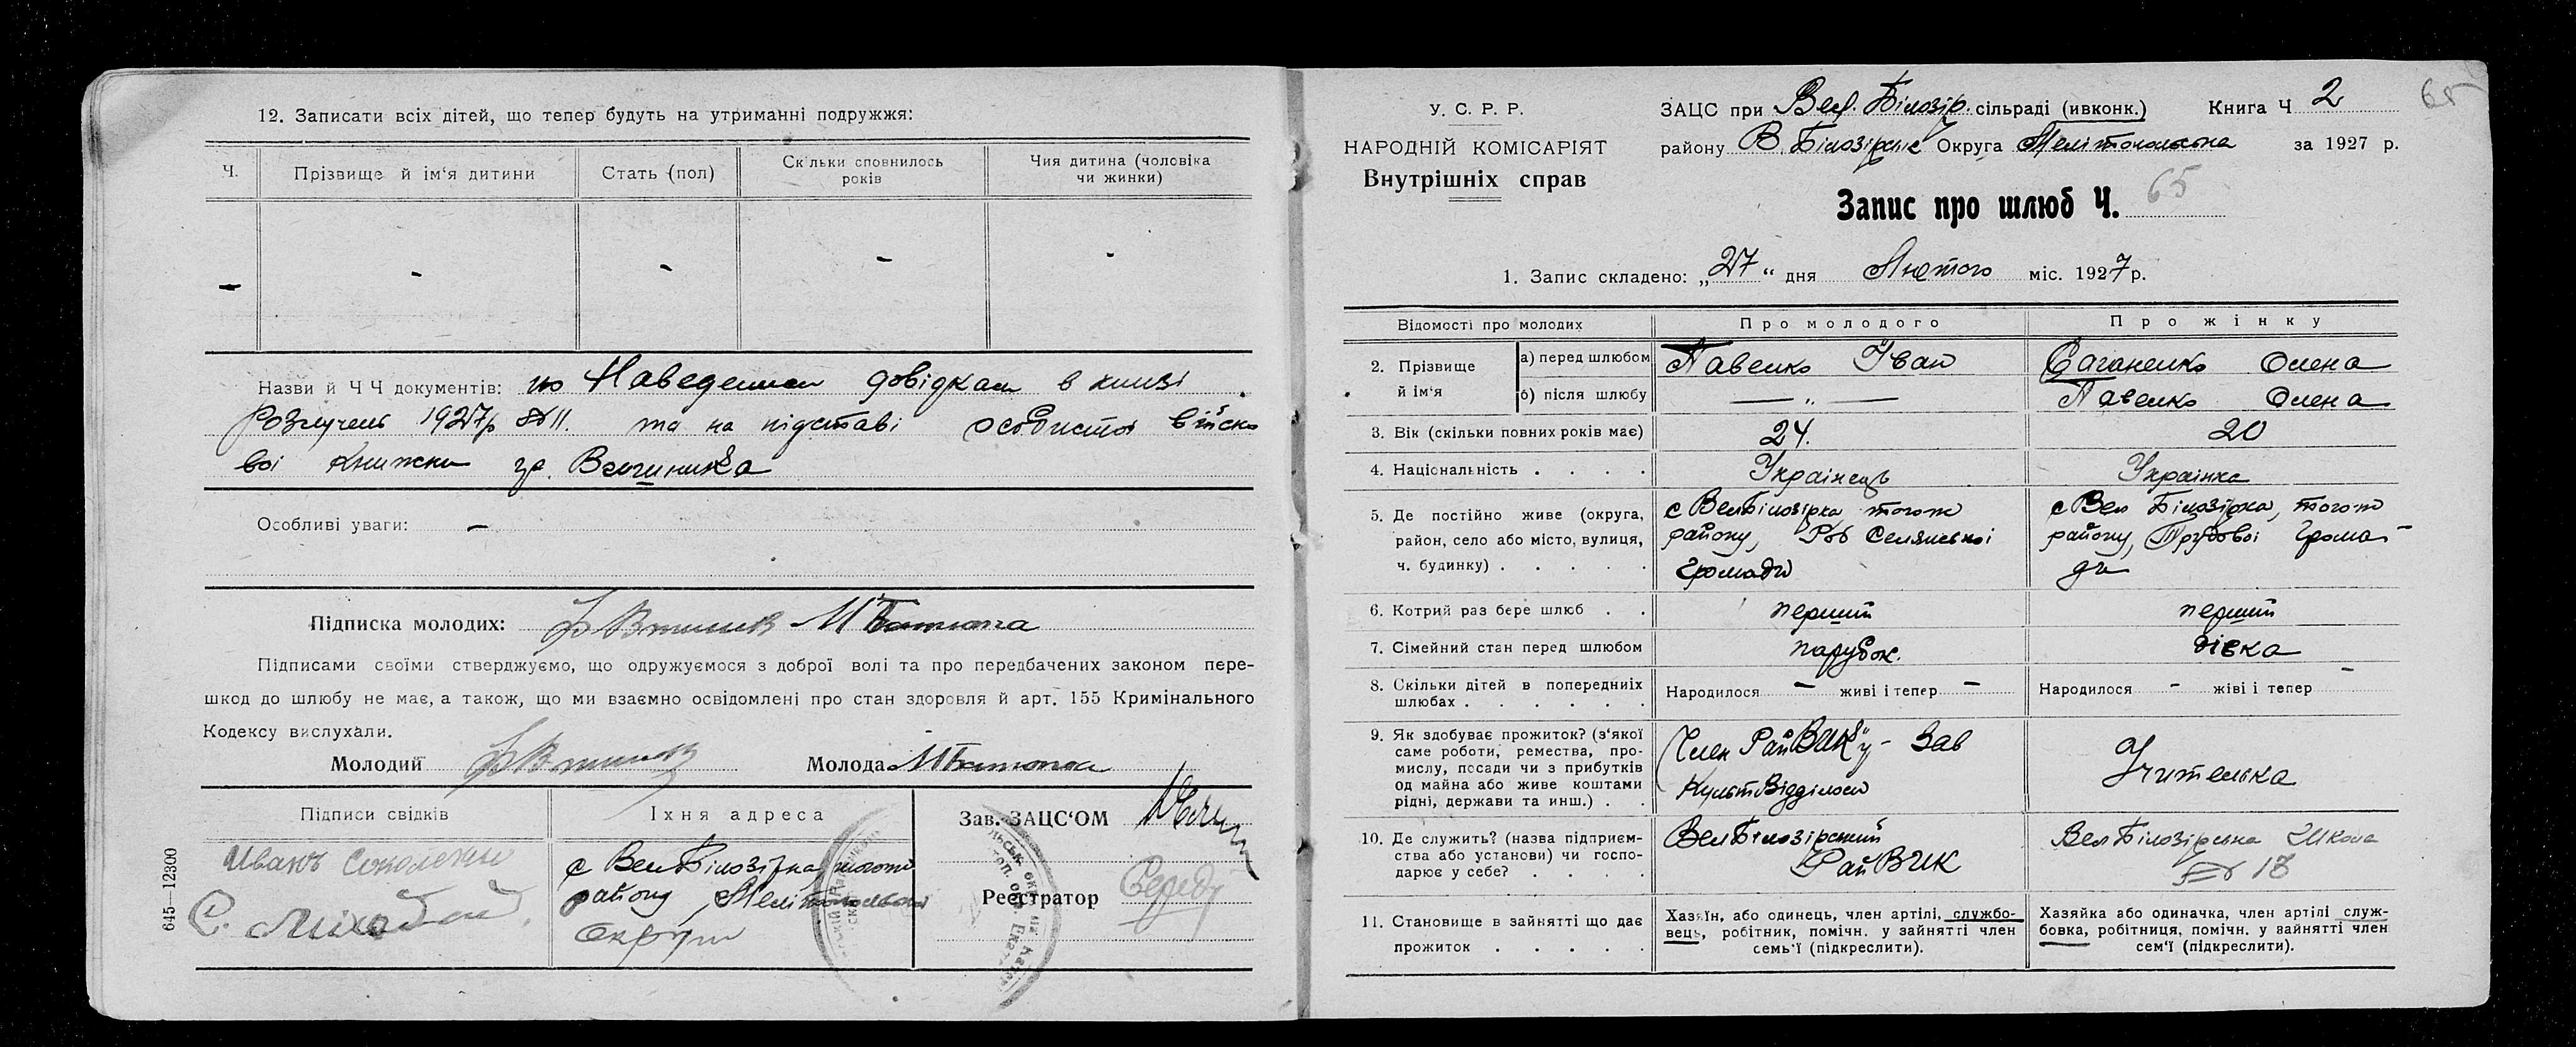 12. Записати всіх дітей, що тепер будуть на утриманні подружжя:
Ч.
Прізвище й ім‘я дитини
Стать (пол)
Скільки сповнилось років
Чия дитина (чоловіка чи жинки)
- - - - -
Назви й ЧЧ документів: по Наведеним довідкам в книзі
Розлучень 1927р та на підставі особистої військо
вої книжки гр.
Особливі уваги: -
Підписка молодих:
Підписами своїми стверджуємо, що одружуємося з доброї волі та про передбачених законом пере-
шкод до шлюбу не має, а також, що ми взаємно освідомлені про стан здоровля й арт. 155 Кримінального
Кодексу вислухали.
Молодий
Молода
Підписи свідків
Їхня адреса
Зав. ЗАЦС‘ОМ
Иванъ
с Вел Білозірка, того ж
району, Мелітопольської
Округи
Реєстратор
645—12300
У. С. Р. Р.
НАРОДНІЙ КОМІСАРІЯТ
Внутрішніх справ
ЗАЦС при Вел. Білозір. сільраді (ивконк.) Книга Ч 2
65
району В. Білозірськ Округа Мелітопольська за 1927 р.
Запис про шлюб Ч. 65
1. Запис складено: „27“ дня Лютого міс. 1927 р.
Відомості про молодих
Про молодого
Про жінку
2. Прізвище й ім‘я
а) перед шлюбом
Павенко Іван
Саганенко Олена
б) після шлюбу
— „ —
Павенко Олена
3. Вік (скільки повних років має)
24.
20
4. Національність . . . .
Українець
Українка
5. Де постійно живе (округа,
район, село або місто, вулиця,
ч. будинку) . . . . .
с Вел Білозірка того ж
району, Роб Селянської
Громади
с Вел Білозірка, того ж
району, Трудової Грома-
ди
6. Котрий раз бере шлюб . .
перший
перший
7. Сімейний стан перед шлюбом
парубок.
дівка
8. Скільки дітей в попередніх
шлюбах . . . . . .
Народилося - живі і тепер -
Народилося - жіві і тепер -
9. Як здобуває прожиток? (з‘якої
саме роботи, ремества, про-
мислу, посади чи з прибутків
од майна або живе коштами
рідні, держави та инш.) . .
Член РайВИК‘у - Зав
КультВідділом
Учителька
10. Де служить? (назва підприєм-
ства або установи) чи госпо-
дарює у себе? . . . .
ВелБілозірський
РайВИК
Вел Білозірська Школа
№ 18
11. Становище в зайнятті що дає
прожиток . . . . .
Хазяїн, або одинець, член артілі, службо-
вець, робітник, помічн. у зайнятті член
семь‘ї (підкреслити).
Хазяйка або одиначка, член артілі служ-
бовка, робітниця, помічн. у зайнятті член
сем‘ї (підкреслити).